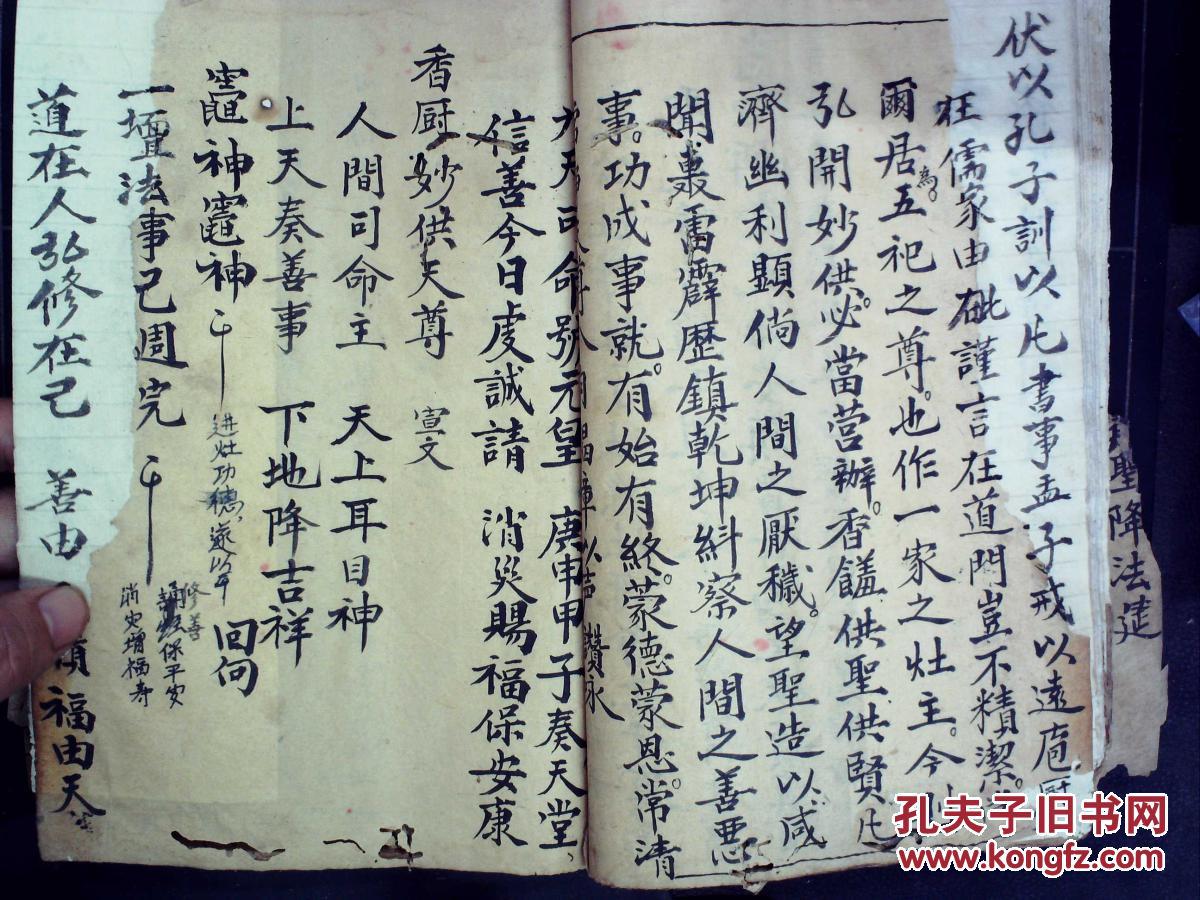 伏以孔子訓以片書事孟子戒以遠庖厨
在儒家由砒謹言在道門豈不精潔
爾居五祀之尊。也作一家之灶主。今
為。
弘開妙供。必當营辦。香饈供聖供賢片
濟幽利顯倘人間之厭穢。望聖造以咸
聞。裏雷霹歷鎮乾坤糾察人間之善惡
事。功成事就。有始有終。蒙德蒙恩。常清
讚永
司命 號元皇 庚申甲子奏天堂
信善今日虔誠請 消災賜福保安康
香厨妙供天尊 宣文
人間司命主 天上耳目神
上天奏善事 下地降吉祥
竈神竈神 回向
进灶功
一壇法事已週完
修善
保平安
消灾增福寿
道在人弘修在己 善由
福由天
聖降法筵
孔夫子旧书网
www.kongfz.com